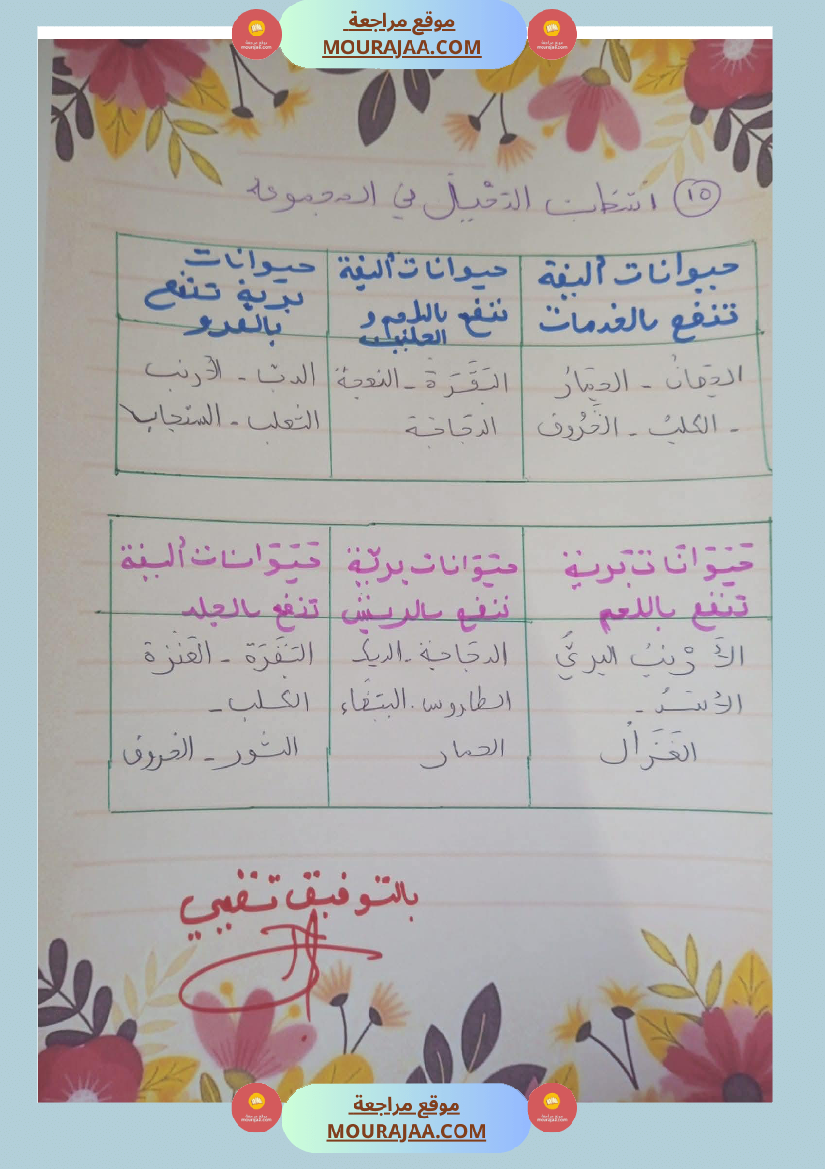 موقع مراجعة
MOURAJAA.COM
15 أشطب الدّخيل في المجموعة
حيوانات أليفة تنفع بالخدمات
حيوانات أليفة تنفع باللحم و الحليب
حيوانات برية تنفع بالفرو
الحِصانُ - الحِمَارُ
- الكلبُ - الخَرُوف
البَقَرَة - النعجة
الدجاجة
الدبّ - الأرنب
الثعلب - السنجاب
حَيَوَانَات بَريّة تنفع باللحم
حيَوَانات بريّة تنفع بالريش
حَيَوَانات أليفة تنفع بالجلد
الأَرْنبُ البريّ
الأسَدُ -
الغَزَال
الدجاجة - الديك
الطاووس - الببغاء
الحمار
البَقَرَة - العَنزة
الكلب -
الثور - الخروف
بالتوفيق
موقع مراجعة
MOURAJAA.COM